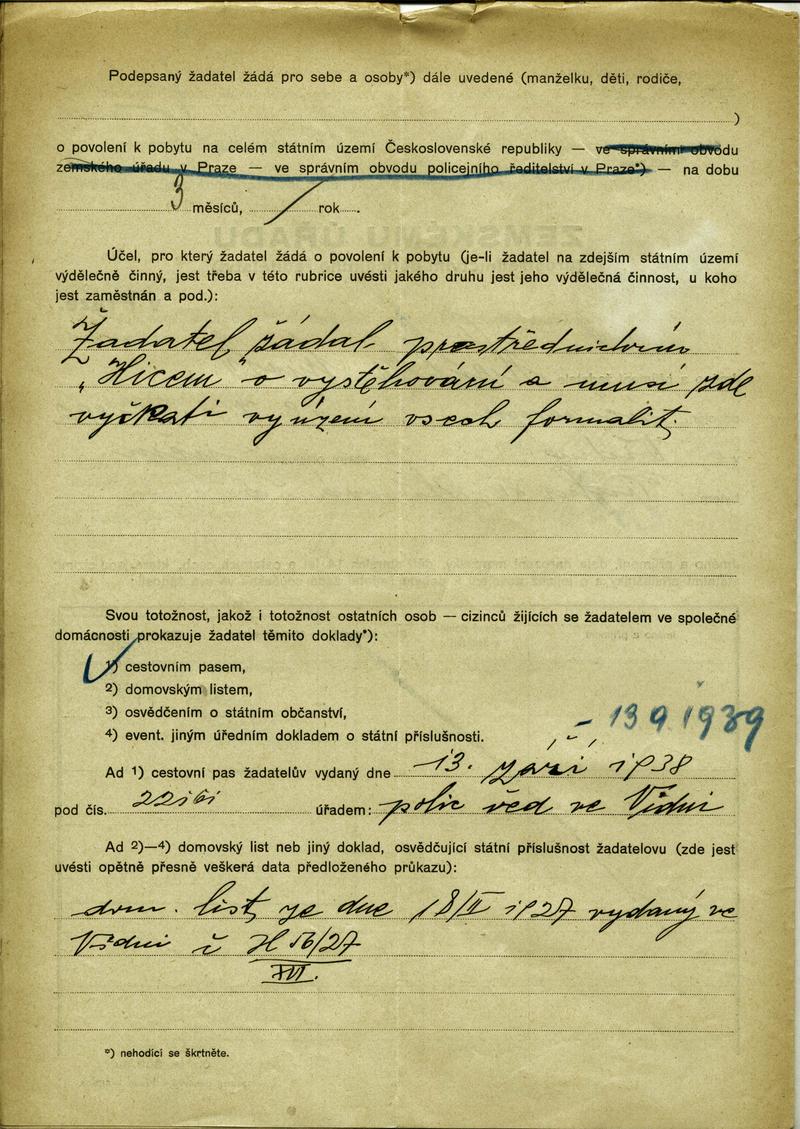 Podepsaný žadatel žádá pro sebe a osoby*) dále uvedené (manželku, děti, rodiče,
)
o povolení k pobytu na celém státním území Československé republiky — ve správním obvodu
zemského úřadu v Praze — ve správním obvodu policejního ředitelství v Praze*) — na dobu
3 měsíců, / rok .
Účel, pro který žadatel žádá o povolení k pobytu (je-li žadatel na zdejším státním území
výdělečně činný, jest třeba v této rubrice uvésti jakého druhu jest jeho výdělečná činnost, u koho
jest zaměstnán a pod.):
Žadatel žádal prostřednictvím
„Hicem" o vystěhování a musí zde
vyčkati vyřízení všech formalit.
Svou totožnost, jakož i totožnost ostatních osob — cizinců žijících se žadatelem ve společné
domácnosti prokazuje žadatel těmito doklady*):
1) cestovním pasem,
2) domovským listem,
3) osvědčením o státním občanství,
4) event. jiným úředním dokladem o státní příslušnosti.
- 13 9 1939
Ad 1) cestovní pas žadatelův vydaný dne 13. září 1938
pod čís. úřadem: polic řed ve Vídni
Ad 2)—4) domovský list neb jiný doklad, osvědčující státní příslušnost žadatelovu (zde jest
uvésti opětně přesně veškerá data předloženého průkazu):
dom. list ze dne 18/II 1927 vydaný ve
Vídni č H 56/27
XVI.
*) nehodící se škrtněte.